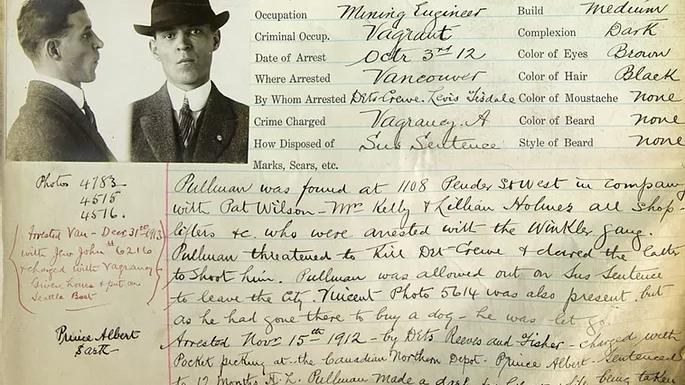 Occupation Mining Engineer Build Medium
Criminal Occup. Vagrant Complexion Dark
Date of Arrest Octr 3rd 12 Color of Eyes Brown
Where Arrested Vancouver Color of Hair Black
By Whom Arrested Dets Crewe. Levis Tisdale Color of Moustache none
Crime Charged Vagrancy. A Color of Beard none
How Disposed of Sus Sentence Style of Beard none
Marks, Scars, etc.
Photos 4783
4515
4516.
Arrested Van - Decr 31st 1913
with Jew John # 6216
& charged with Vagrancy -
Given hours & put on
Seattle Boat
Prince Albert
Sask
Pullman was found at 1108 Pender St West in company
with Pat Wilson - Mrs Kelly & Lillian Holmes all Shop-
lifters &c. who were arrested with the Winkler gang.
Pullman threatened to Kill Det Crewe & dared the latter
to Shoot him. Pullman was allowed out on Sus Sentence
to leave the City. Vincent Photo 5614 was also present, but
as he had gone there to buy a dog - he was let go.
Arrested Novr 15th 1912 - by Dets Reeves and Fisher - charged with
Pocket picking at the Canadian Northern Depot. Prince Albert - Sentenced
to 12 Months H.L. Pullman made a dash for being taken